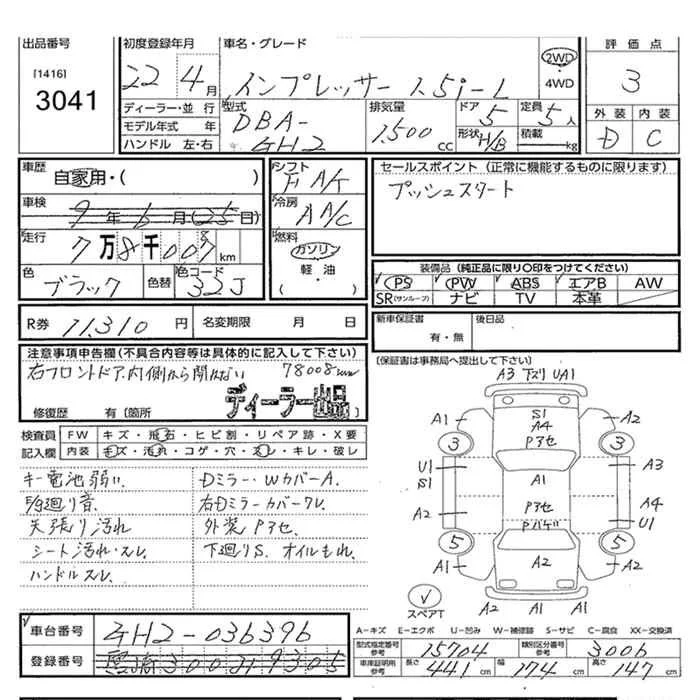 出品番号 初度登録年月 車名・グレード 2WD 評価点
[1416] 22年 4月 インプレッサー 1.5i-L 4WD 3
3041
ディーラー・並行 型式 排気量 ドア 5 定員 5人 外装 内装
モデル年式 年 DBA- 1,500cc 形状 H/B 積載 kg D C
ハンドル 左・右 GH2
車歴 自家用・( ) シフト F A/T セールスポイント (正常に機能するものに限ります)
車検 9年6月(25日) 冷房 AA/C プッシュスタート
走行 7万8千008km 燃料 ガソリン
色 ブラック 色替 色コード 32J 軽・油 ( )
装備品 (純正品に限り○印をつけてください)
PS PW ABS エアB AW
SR(サンルーフ) ナビ TV 本革
R券 11,310円 名変期限 月 日
新車保証書 有・無 後日品
注意事項申告欄(不具合内容等は具体的に記入して下さい)
(保証書は事務局へ提出して下さい)
右フロントドア、内側から開かない 78008km
ディーラー出品
修復歴 有〔箇所 〕
検査員 FW キズ・飛石・ヒビ割・リペア跡・X要
記入欄 内装 キズ・汚れ・コゲ・穴・スレ・キレ・破レ
キー電池弱い。 Dミラー・Wカバー A.
廻り音 右Dミラーカバークレ.
天張り汚れ 外装 Pアセ
シート汚れ・スレ. 下廻りS. オイルもれ.
ハンドルスレ.
A3 下ズリ UA1
A1 S1 A2
A4
Pアセ
3 3
U1 A1 A3
S1
A2 Pアセ A4
Pハゲ U1
5 5
A2
A1 A1
スペアT A2 A1 A1
A-キズ E-エクボ U-凹み W-補修跡 S-サビ C-腐食 XX-交換済
車台番号 GH2-036396
型式指定番号 参考 15704 類別区分番号 参考 3006
登録番号 300 9305
車庫証明用 参考 長さ 441cm 幅 174cm 高さ 147cm